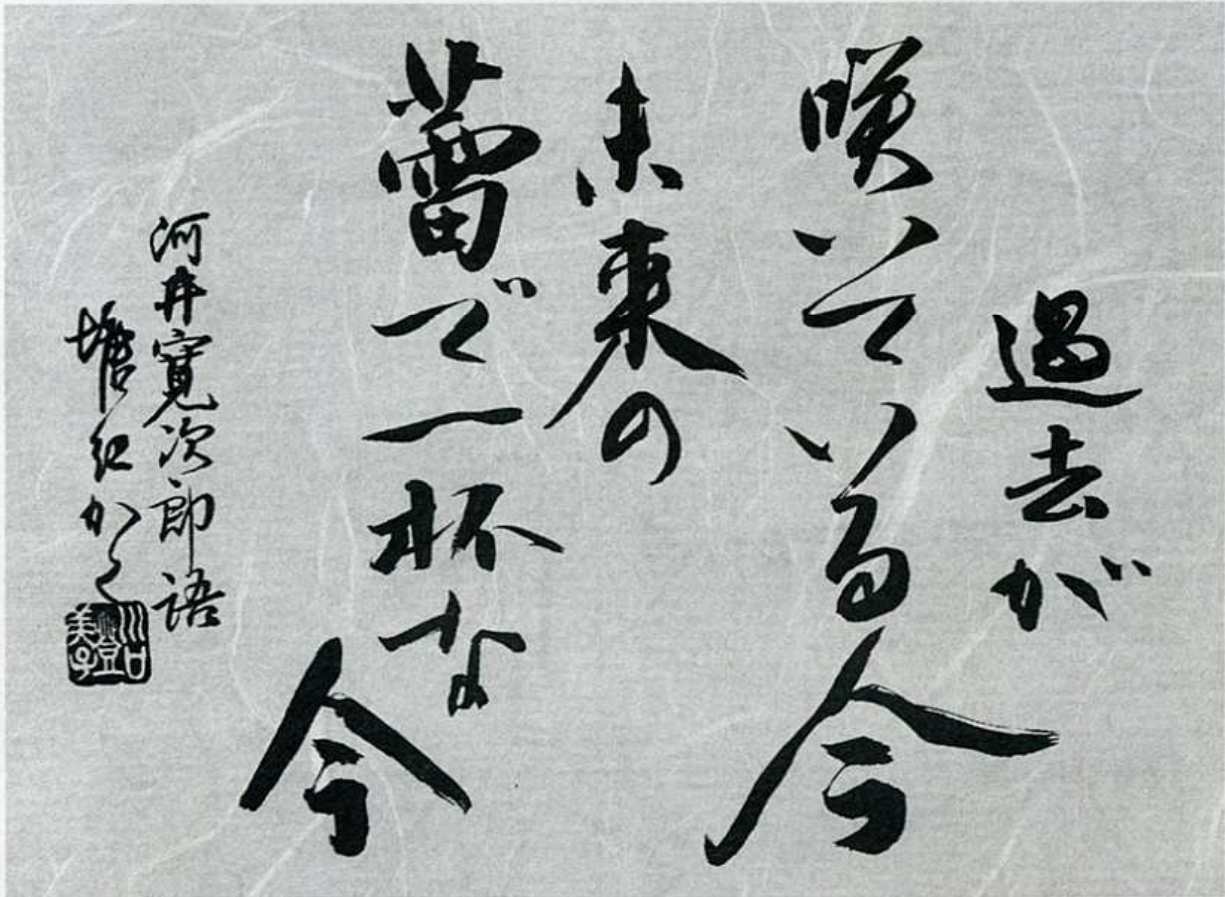 過去が
咲いている今
未来の
蕾で一杯な
今
河井寛次郎語
紀かく